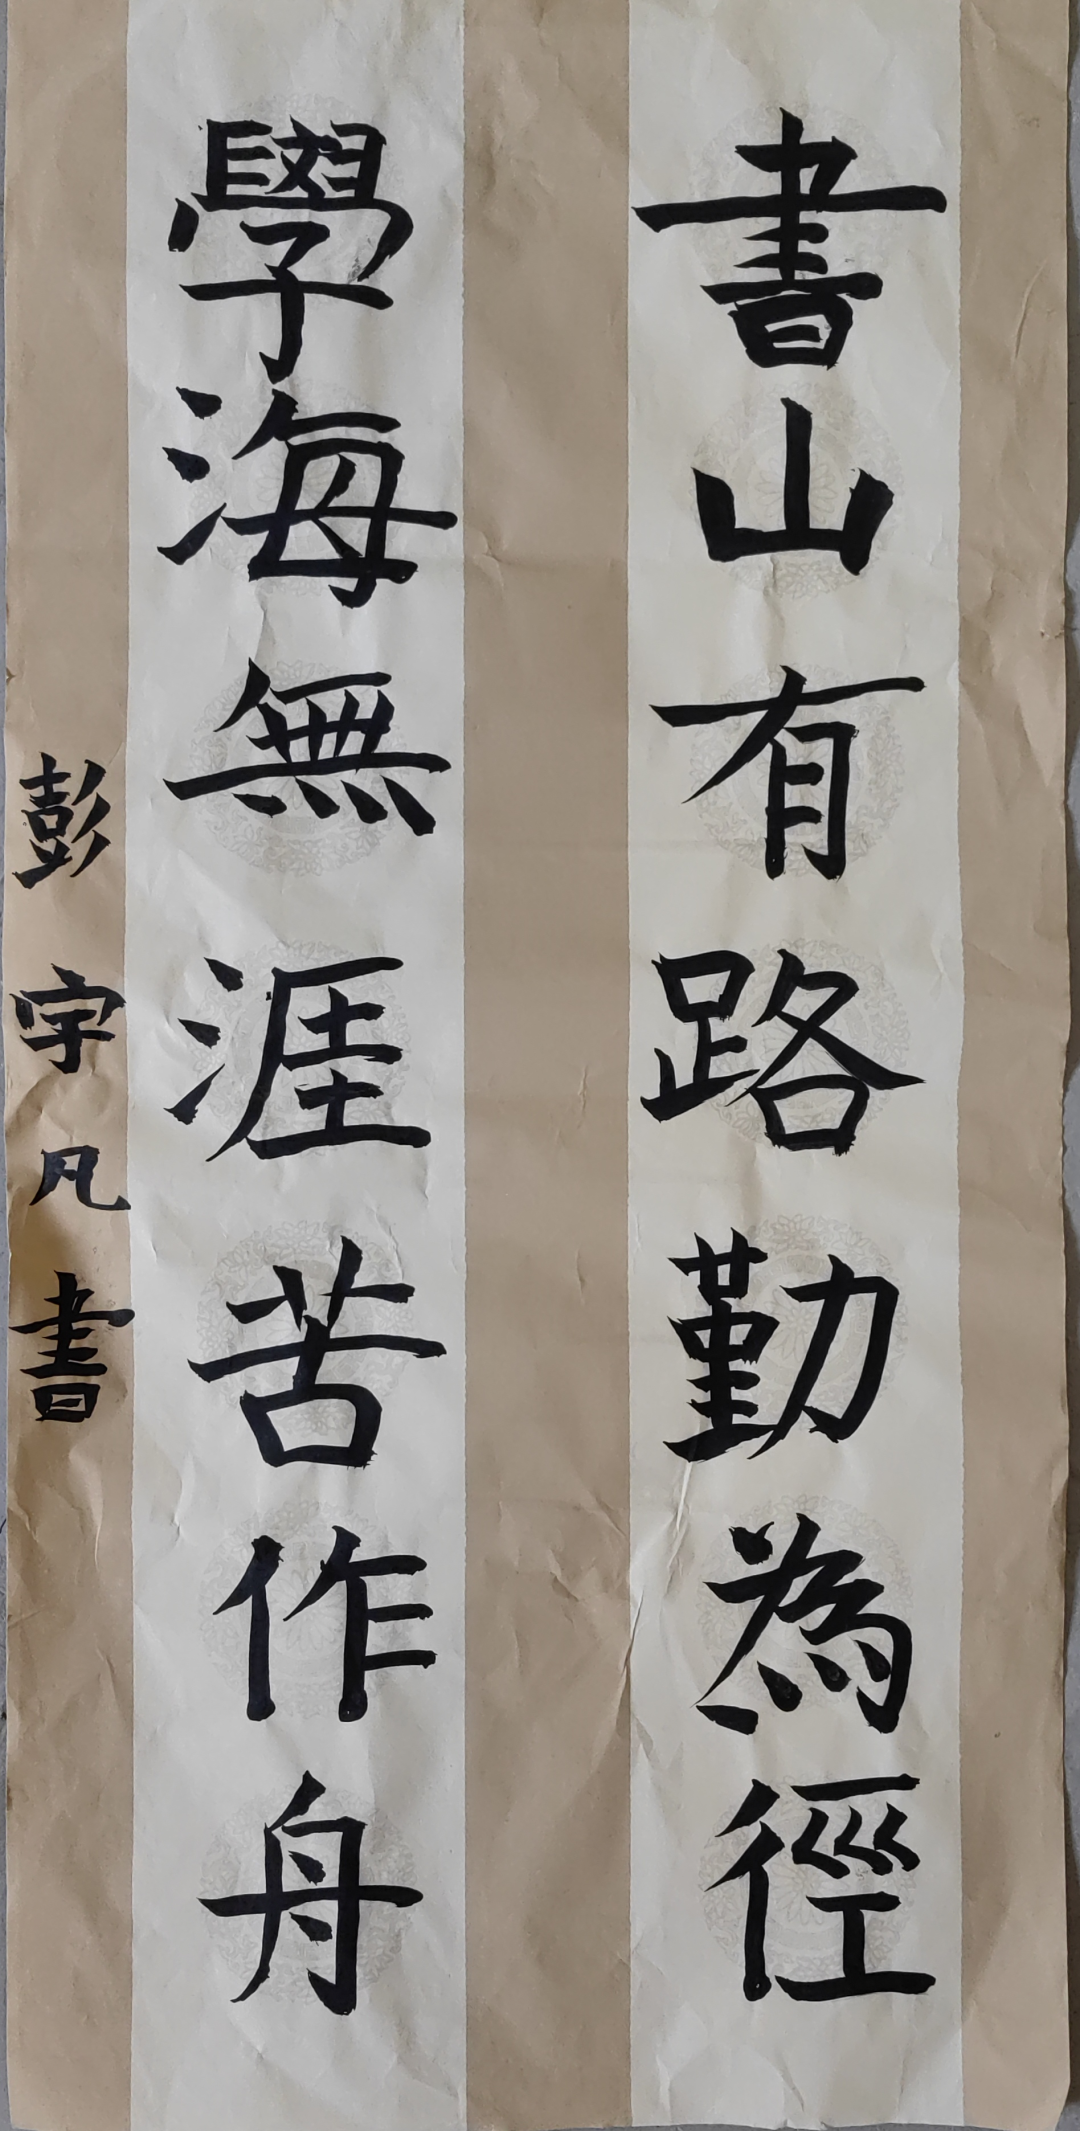 書山有路勤為徑
學海無涯苦作舟
彭字凡書